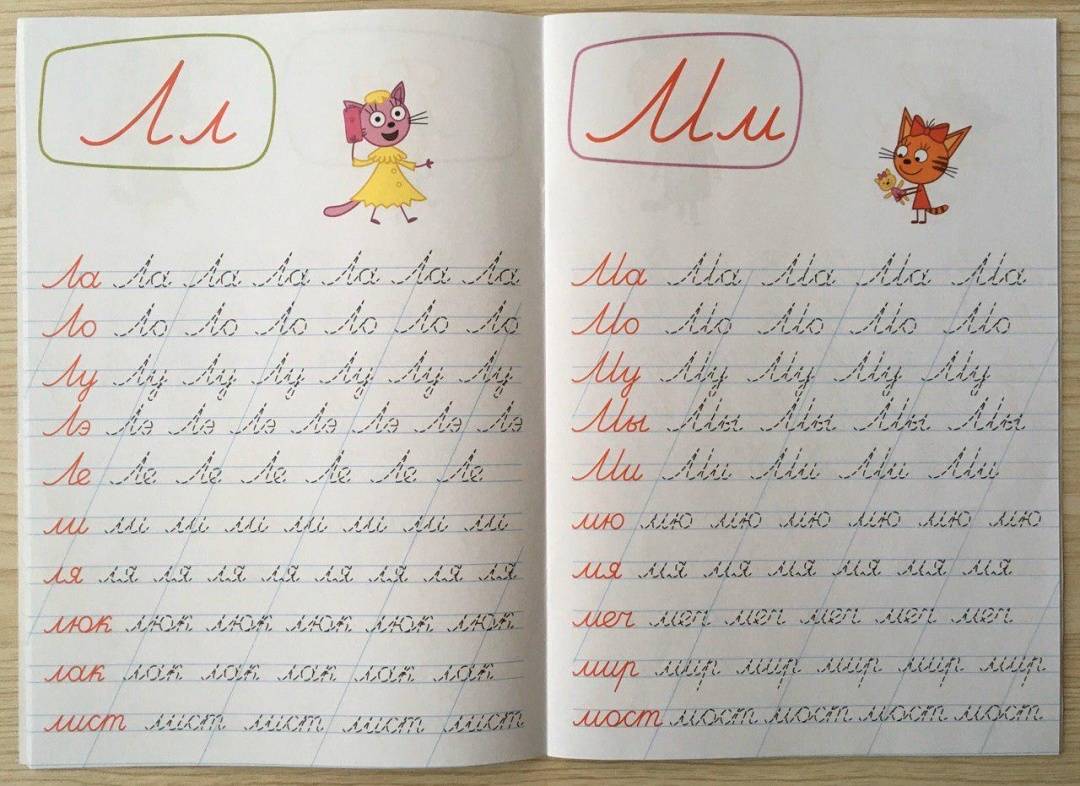 Лл
Ла Ла Ла Ла Ла Ла Ла
Ло Ло Ло Ло Ло Ло Ло
Лу Лу Лу Лу Лу Лу Лу
Лэ Лэ Лэ Лэ Лэ Лэ Лэ
Ле Ле Ле Ле Ле Ле Ле
ли ли ли ли ли ли ли ли
ля ля ля ля ля ля ля ля
люк люк люк люк люк люк
лак лак лак лак лак лак
лист лист лист лист лист
Мм
Ма Ма Ма Ма Ма
Мо Мо Мо Мо Мо
Му Му Му Му Му
Мы Мы Мы Мы Мы
Ми Ми Ми Ми Ми
мю мю мю мю мю мю мю
мя мя мя мя мя мя мя
меч меч меч меч меч меч
мир мир мир мир мир мир
мост мост мост мост мост